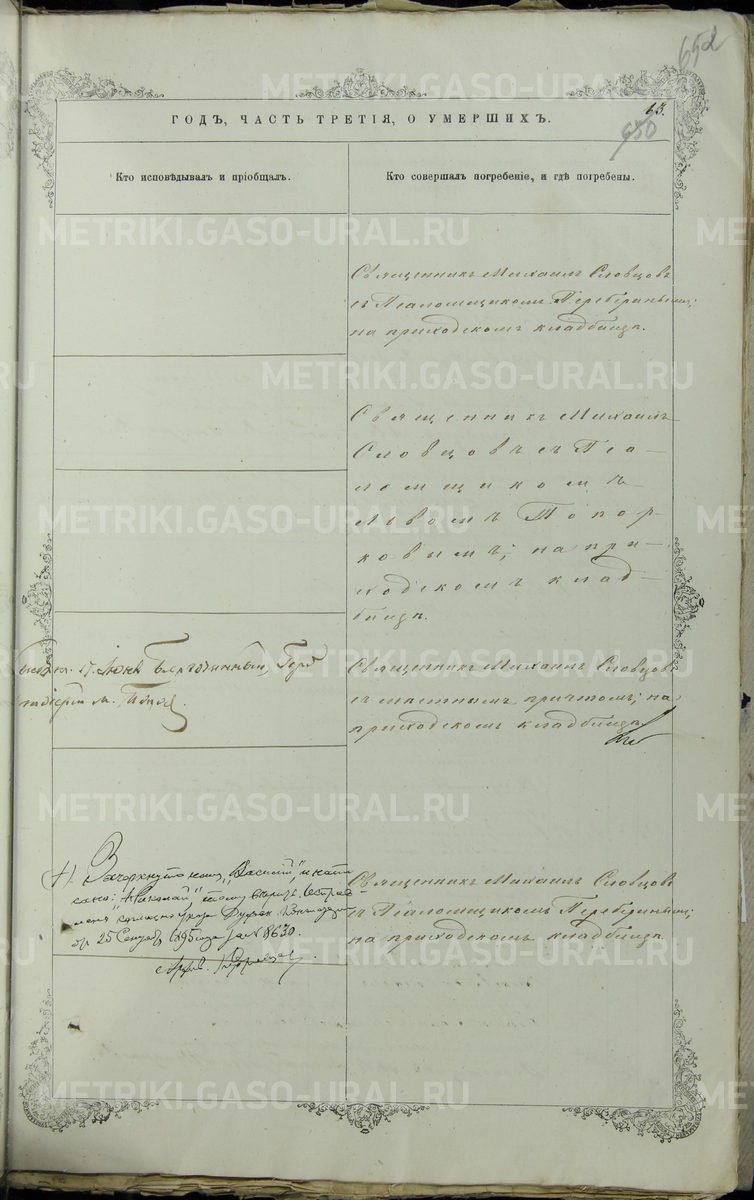 652
13.
650
ГОДЪ, ЧАСТЬ ТРЕТІЯ, О УМЕРШИХЪ.
Кто исповѣдывалъ и пріобщалъ.
Кто совершалъ погребеніе, и гдѣ погребены.
Священникъ Михаилъ Словцовъ
съ Псаломщикомъ Переберинымъ;
на приходскомъ кладбищѣ.
Священникъ Михаилъ
Словцовъ съ Пса-
ломщикомъ
Львомъ Топор-
ковымъ; на при-
ходскомъ клад-
бищѣ.
17. Іюня Благочинный,
Священникъ Михаилъ Словцовъ
съ мѣстнымъ причтомъ; на
приходскомъ кладбищѣ.
Зачеркнуто слово „Василій“ и напи
сано: „Николай“ этому вѣрить.
25 Сентября 1895 года за № 8630.
Священникъ Михаилъ Словцовъ
съ Псаломщикомъ Переберинымъ;
на приходскомъ кладбищѣ.
METRIKI.GASO-URAL.RU